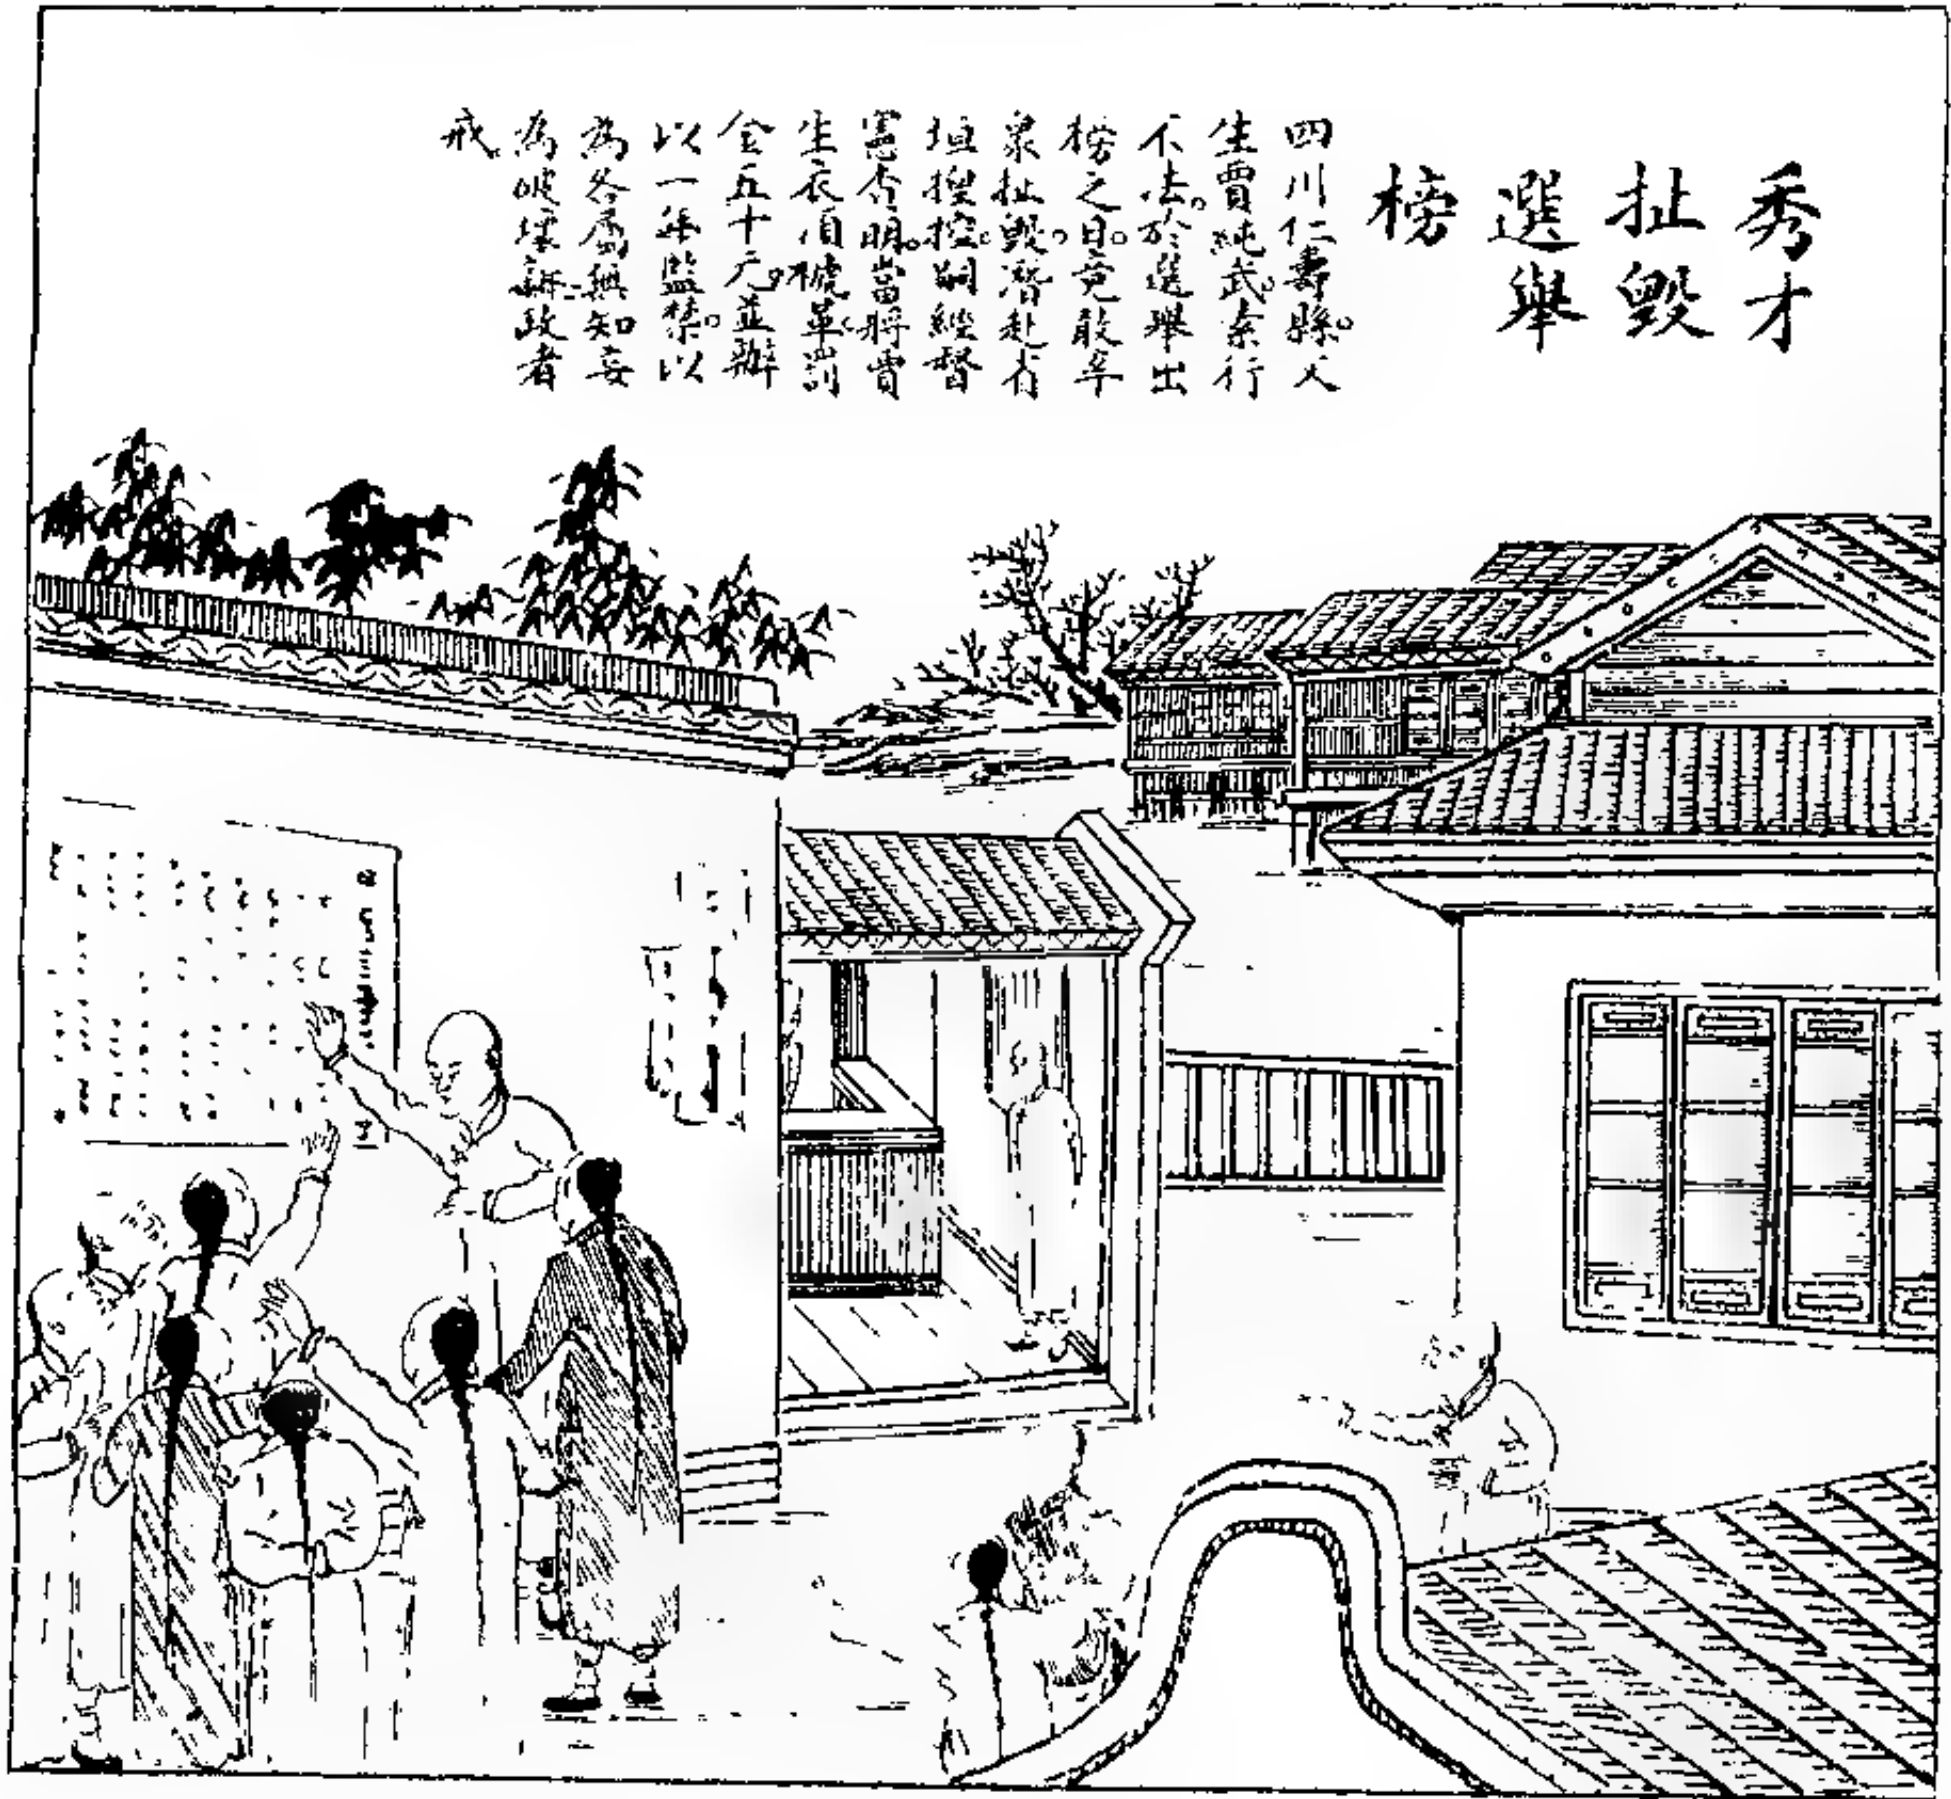 秀才
扯毀
選舉
榜
四川仁壽縣。文
生賈純武。素行
不法。於選舉出
榜之日。竟敢率
衆扯毀。潛赴省
垣揑控。嗣經督
憲查明。當將賈
生衣頂褫革。罰
金五十元。並辦
以一年監禁。以
為各屬無知妄
為破壞新政者
戒。